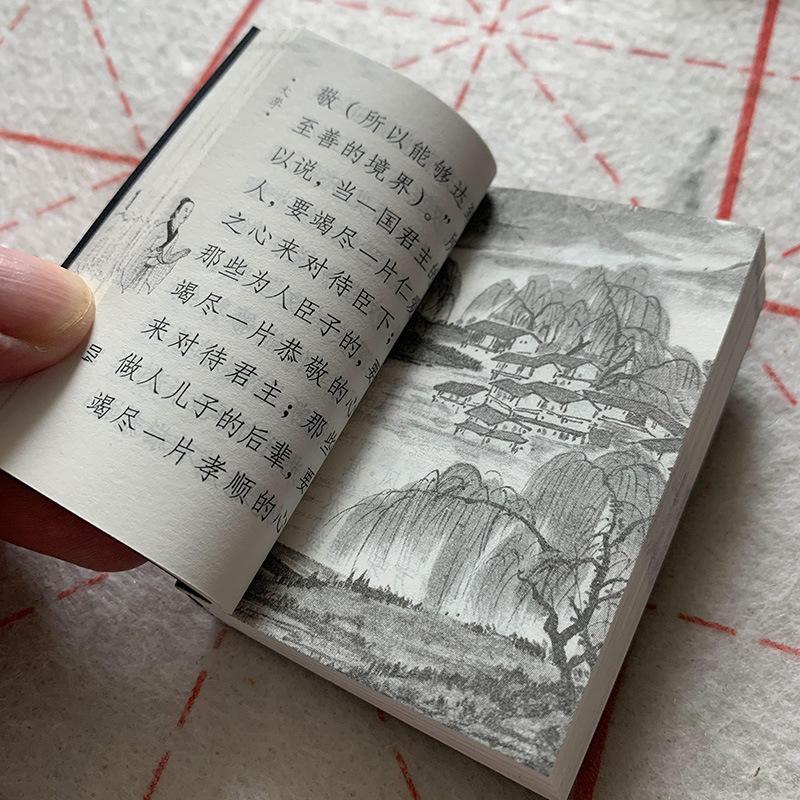 ·大学·
敬（所以能够达
至善的境界）。”所
以说，当一国君主的
人，要竭尽一片仁爱
之心来对待臣下；
那些为人臣子的，要
竭尽一片恭敬的心
来对待君主；那些
做人儿子的后辈，要
竭尽一片孝顺的心